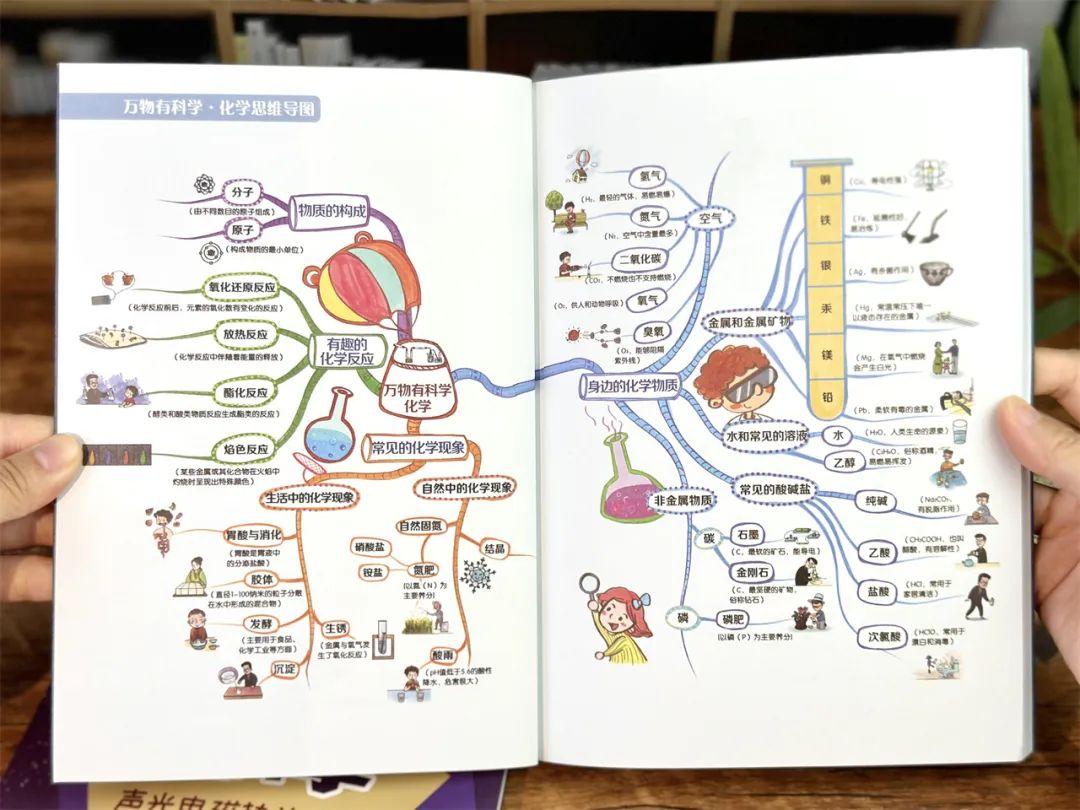 万物有科学·化学思维导图
分子
(由不同数目的原子组成)
原子
(构成物质的最小单位)
物质的构成
氧化还原反应
(化学反应前后，元素的氧化数有变化的反应)
放热反应
(化学反应中伴随着能量的释放)
酯化反应
(醇类和酸类物质反应生成酯类的反应)
焰色反应
(某些金属或其化合物在火焰中
灼烧时呈现出特殊颜色)
有趣的
化学反应
万物有科学
化学
常见的化学现象
生活中的化学现象
胃酸与消化
(胃酸是胃液中
的分泌盐酸)
胶体
(直径1-100纳米的粒子分散
在水中形成的混合物)
发酵
(主要用于食品、
化学工业等方面)
沉淀
生锈
(金属与氧气发
生了氧化反应)
自然中的化学现象
自然固氮
硝酸盐
铵盐
氮肥
(以氮（N）为
主要养分)
结晶
酸雨
(pH值低于5.6的酸性
降水，危害很大)
身边的化学物质
空气
氢气
(H₂，最轻的气体，易燃易爆)
氮气
(N₂，空气中含量最多)
二氧化碳
(CO₂，不燃烧也不支持燃烧)
氧气
(O₂，供人和动物呼吸)
臭氧
(O₃，能够阻隔
紫外线)
金属和金属矿物
铜
(Cu，导电性强)
铁
(Fe，延展性好，
易冶炼)
银
(Ag，有杀菌作用)
汞
(Hg，常温常压下唯一
以液态存在的金属)
镁
(Mg，在氧气中燃烧
会产生白光)
铅
(Pb，柔软有毒的金属)
水和常见的溶液
水
(H₂O，人类生命的源泉)
乙醇
(C₂H₆O，俗称酒精，
易燃易挥发)
常见的酸碱盐
纯碱
(Na₂CO₃，
有脱脂作用)
乙酸
(CH₃COOH，也叫
醋酸，有溶解性)
盐酸
(HCl，常用于
家居清洁)
次氯酸
(HClO，常用于
漂白和消毒)
非金属物质
碳
石墨
(C，最软的矿石，能导电)
金刚石
(C，最坚硬的矿物，
俗称钻石)
磷
磷肥
(以磷（P）为主要养分)
声光电磁